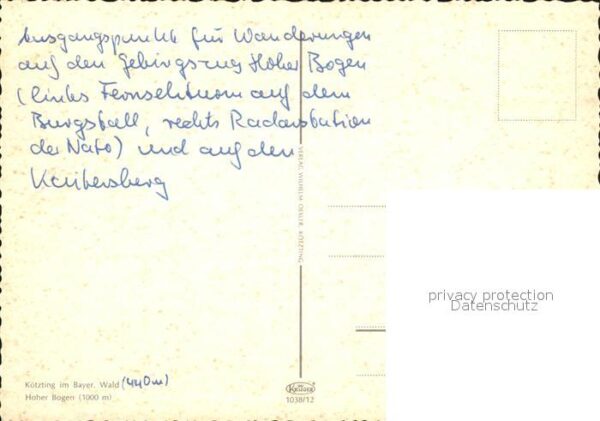 Ausgangspunkt für Wanderungen
auf den Gebirgszug Hoher Bogen
(links Fernsehturm auf dem
Burgstall, rechts Radarstation
der Nato) und auf den
Kaitersberg
VERLAG WILHELM OEXLER, KÖTZTING
privacy protection
Datenschutz
Kötzting im Bayer. Wald (440m)
Hoher Bogen (1000 m)
1038/12